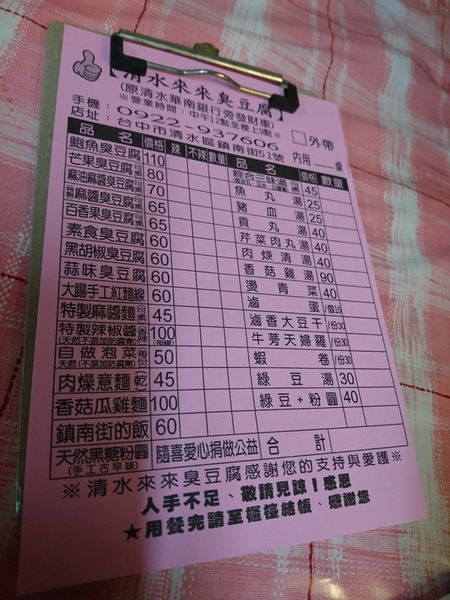 【清水來來臭豆腐】
(原清水華南銀行旁發財車)
※營業時間：中午12點至晚上9點※
手機：0922-937606
店址：台中市清水區鎮南街51號
□外帶
內用 桌
品名 價格 辣 不辣 數量 品名 價格 數量
鮑魚臭豆腐 110
芒果臭豆腐 80
麻油麻醬臭豆腐 70
麻醬臭豆腐 65
百香果臭豆腐 65
素食臭豆腐 60
黑胡椒臭豆腐 60
蒜味臭豆腐 60
大腸手工紅麵線 60
特製麻醬麵 40
特製辣椒醬 100
(天然不添加防腐劑)
自做泡菜 50
(天然不添加防腐劑)
肉燥意麵 乾 45
香菇瓜雞麵 100
鎮南街的飯 60
天然黑糖粉圓
(手工古早味)
隨喜愛心捐做公益
綜合三味湯 45
魚丸湯 25
豬血湯 25
貢丸湯 40
芹菜肉丸湯 40
肉焿清湯 40
香菇雞湯 90
燙青菜 40
滷蛋 /個15
滷香大豆干 /份30
牛蒡天婦羅 /份30
蝦卷 /份30
綠豆湯 30
綠豆+粉圓 40
合計
※清水來來臭豆腐感謝您的支持與愛護※
人手不足、敬請見諒！感恩
★用餐完請至櫃檯結帳、感謝您